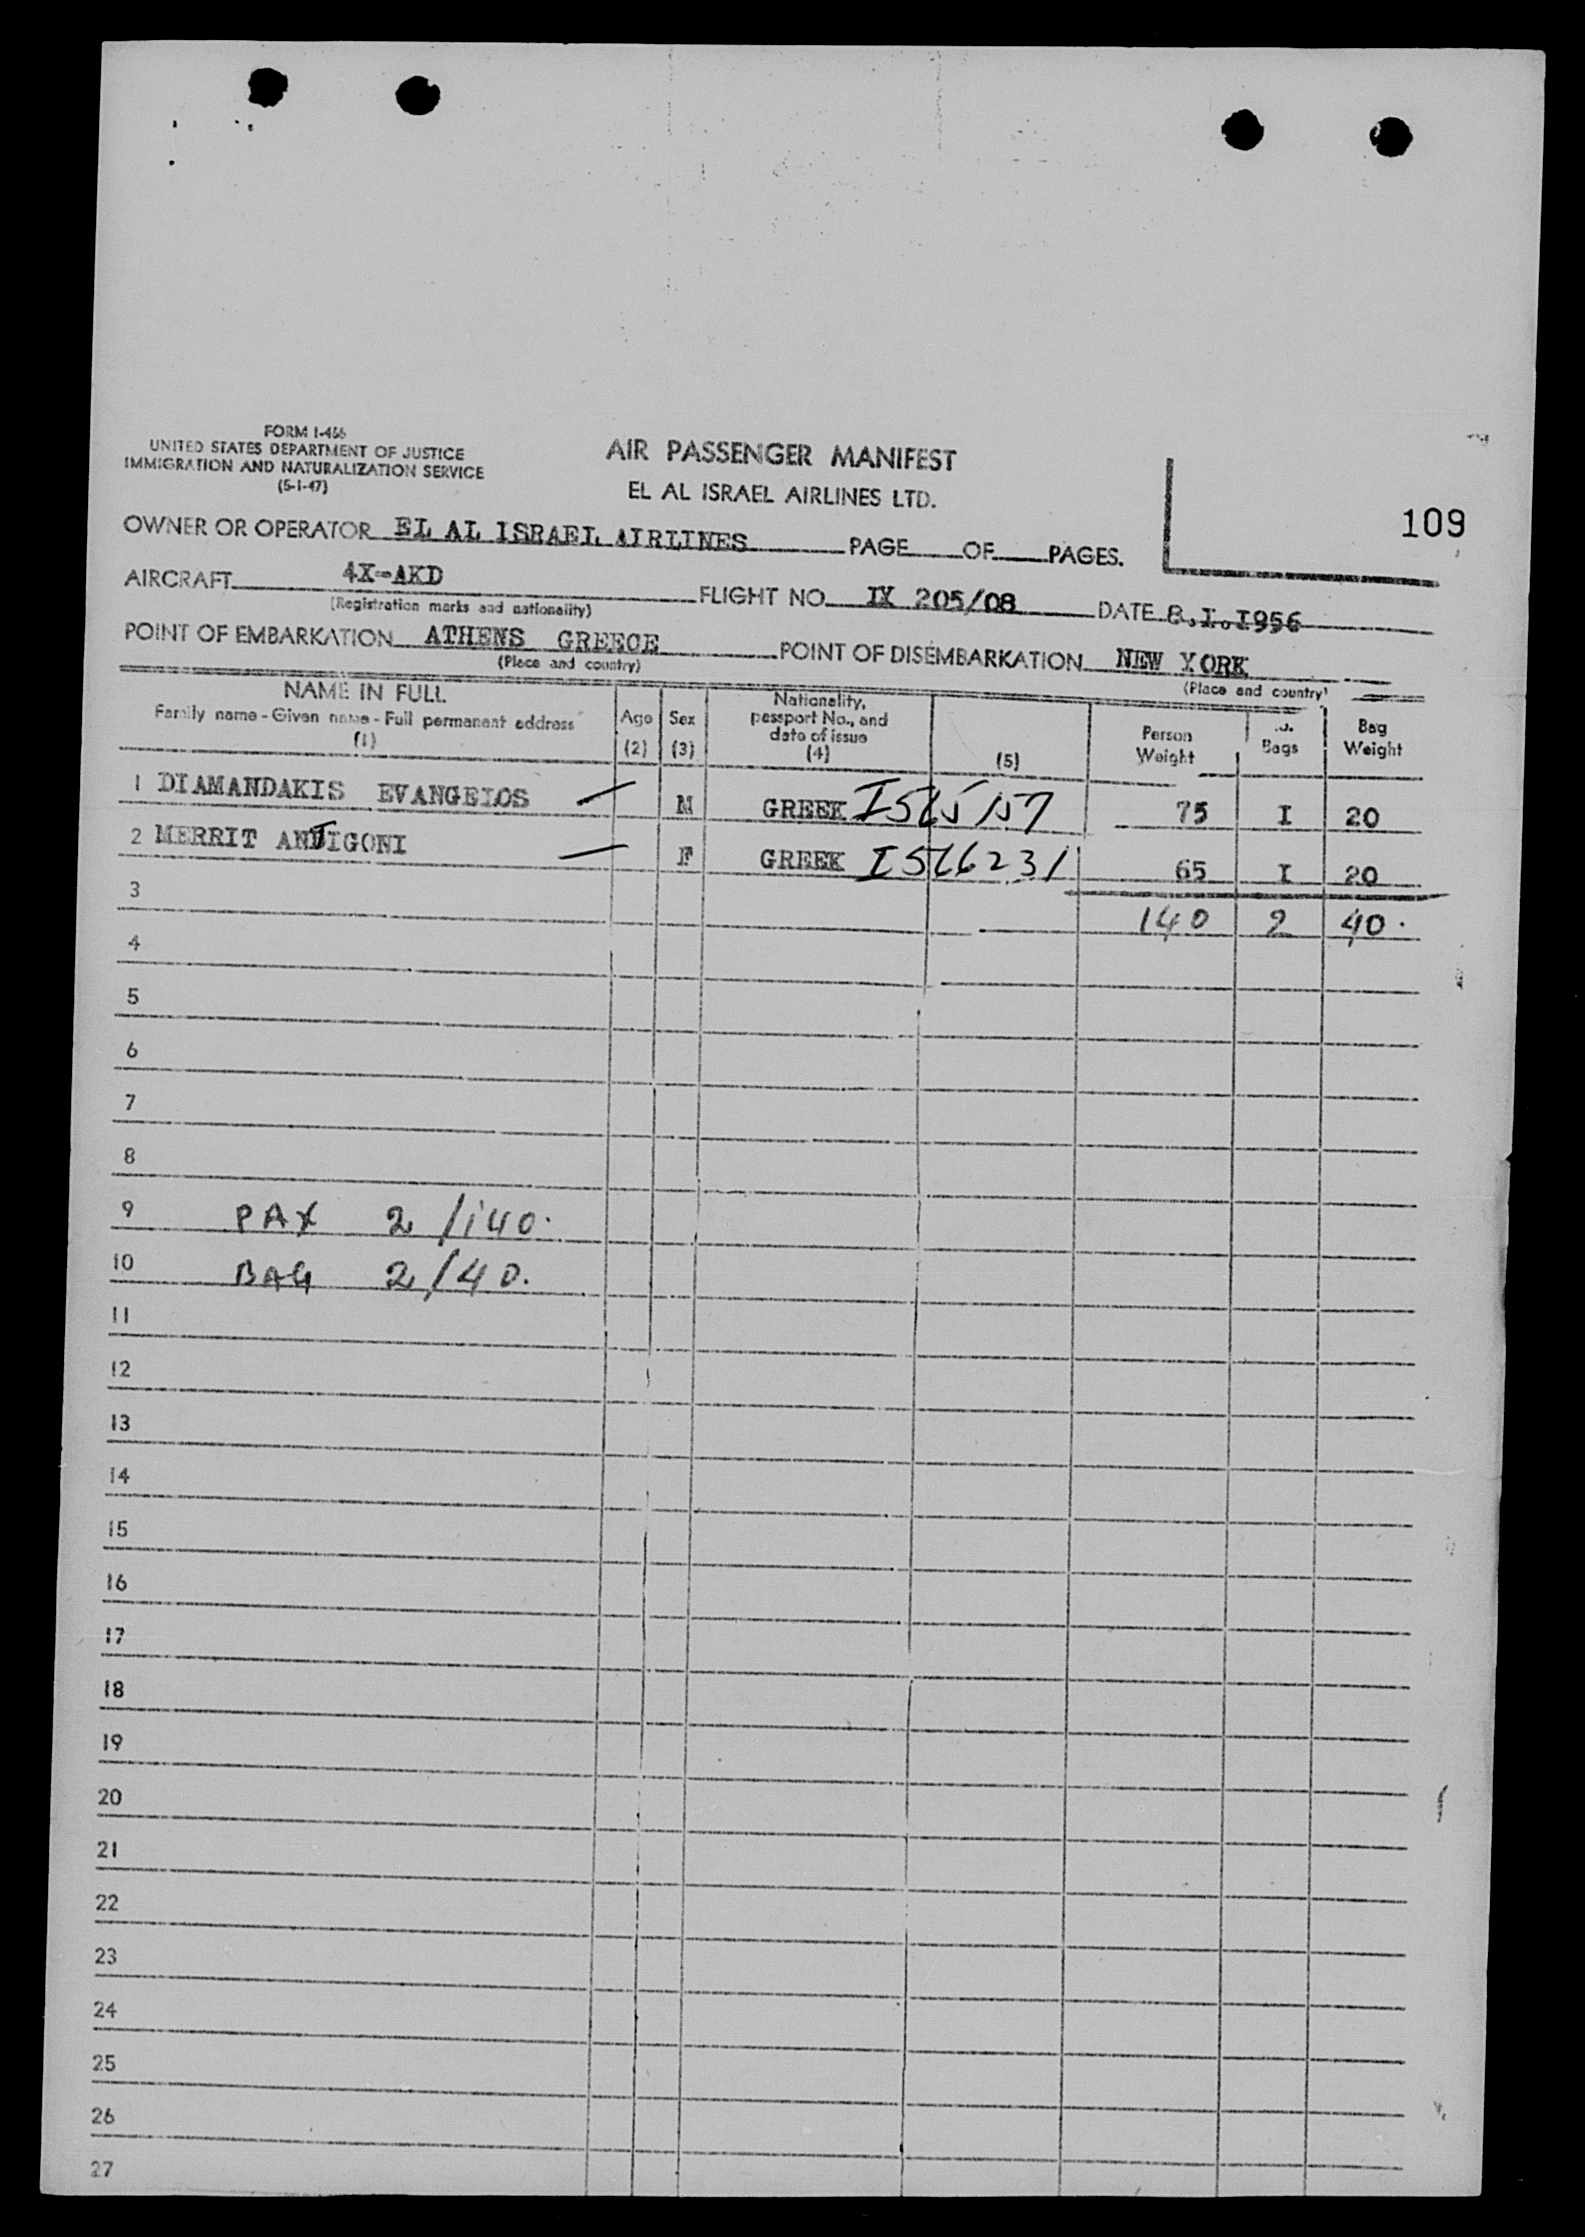 FORM I-466
UNITED STATES DEPARTMENT OF JUSTICE
IMMIGRATION AND NATURALIZATION SERVICE
(5-1-47)
AIR PASSENGER MANIFEST
EL AL ISRAEL AIRLINES LTD.
109
OWNER OR OPERATOR EL AL ISRAEL AIRLINES PAGE OF PAGES.
AIRCRAFT 4X-AKD FLIGHT NO. IX 205/08 DATE 8.I.I956
(Registration marks and nationality)
POINT OF EMBARKATION ATHENS GREECE POINT OF DISEMBARKATION NEW YORK
(Place and country) (Place and country)
NAME IN FULL
Family name - Given name - Full permanent address
(1)
Age
(2)
Sex
(3)
Nationality,
passport No., and
date of issue
(4)
(5)
Person
Weight
Bags
Bag
Weight
1 DIAMANDAKIS EVANGELOS M GREEK 75 I 20
2 MERRIT ANTIGONI F GREEK 65 I 20
3 140 2 40.
4
5
6
7
8
9 PAX 2/140.
10 BAG 2/40.
11
12
13
14
15
16
17
18
19
20
21
22
23
24
25
26
27